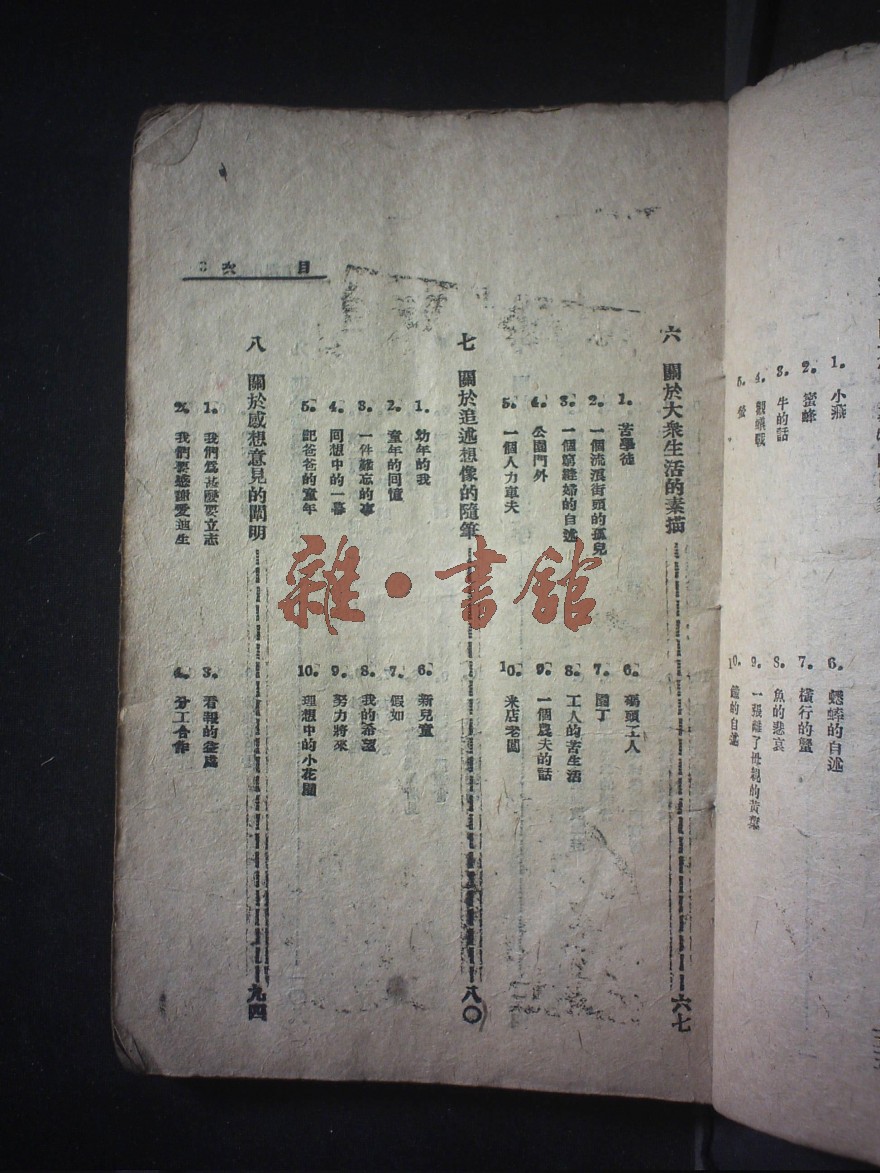 1. 小燕
2. 蜜蜂
3. 牛的話
4. 觀蟻戰
5. 螢
6. 蟋蟀的自述
7. 橫行的蟹
8. 魚的悲哀
9. 一張離了母親的黃葉
10. 的自述
目次 3
六 關於大衆生活的素描 六七
1. 苦學徒
2. 一個流浪街頭的孤兒
3. 一個窮縫婦的自述
4. 公園門外
5. 一個人力車夫
6. 碼頭工人
7. 園丁
8. 工人的苦生活
9. 一個農夫的話
10. 米店老闆
七 關於追述想像的隨筆 八〇
1. 幼年的我
2. 童年的回憶
3. 一件難忘的事
4. 回想中的一幕
5. 記爸爸的童年
6. 新兒童
7. 假如
8. 我的希望
9. 努力將來
10. 理想中的小花園
八 關於感想意見的闡明 九四
1. 我們爲甚麼要立志
2. 我們要感謝愛迪生
3. 看報的益處
4. 分工合作
雜·書館